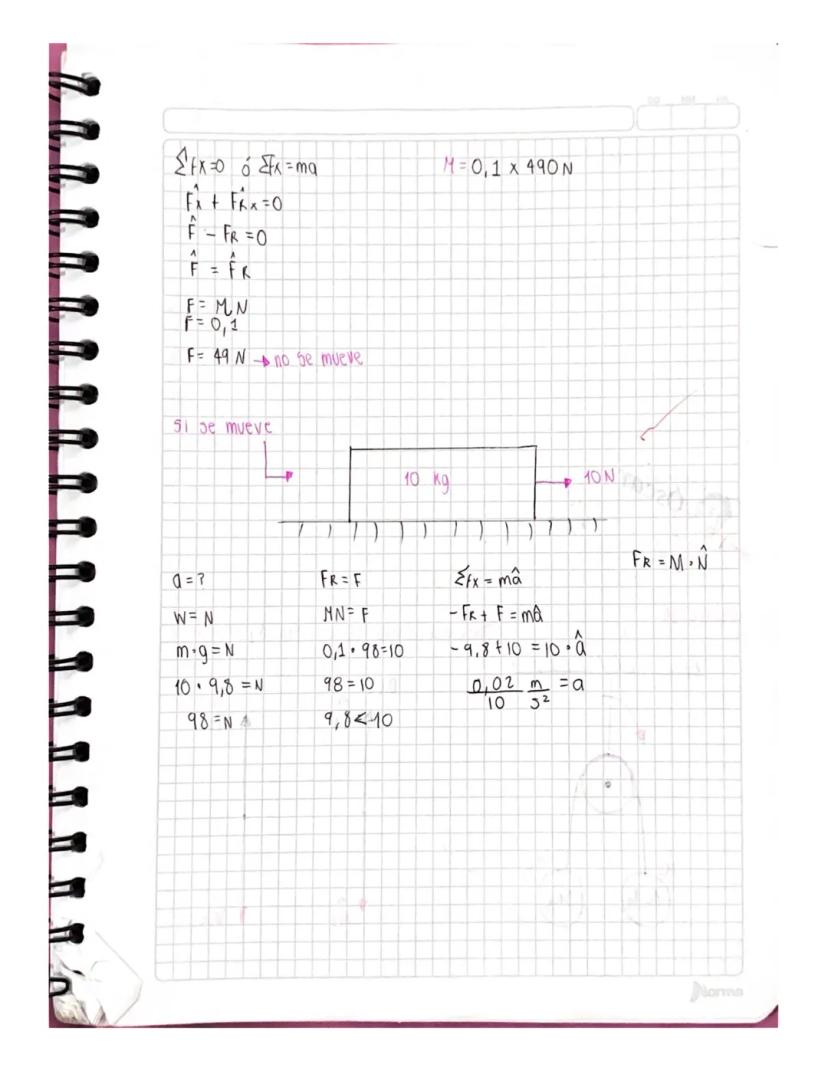 Σfx=0 ó Σfx=ma
M=0,1 x 490N
Fx + FRx=0
F - FR=0
F = FR
F= MN
F=0,1
F= 49 N → no se mueve
si se mueve
10 kg
10 N
FR=M·N
a=?
FR=F
Σfx = mâ
W=N
MN=F
-FR+ F=mâ
m·g=N
0,1·98=10
-9,8+10 =10·â
10·9,8=N
98=10
0,02/10 m/s² =a
98=N
9,8<10
Norma